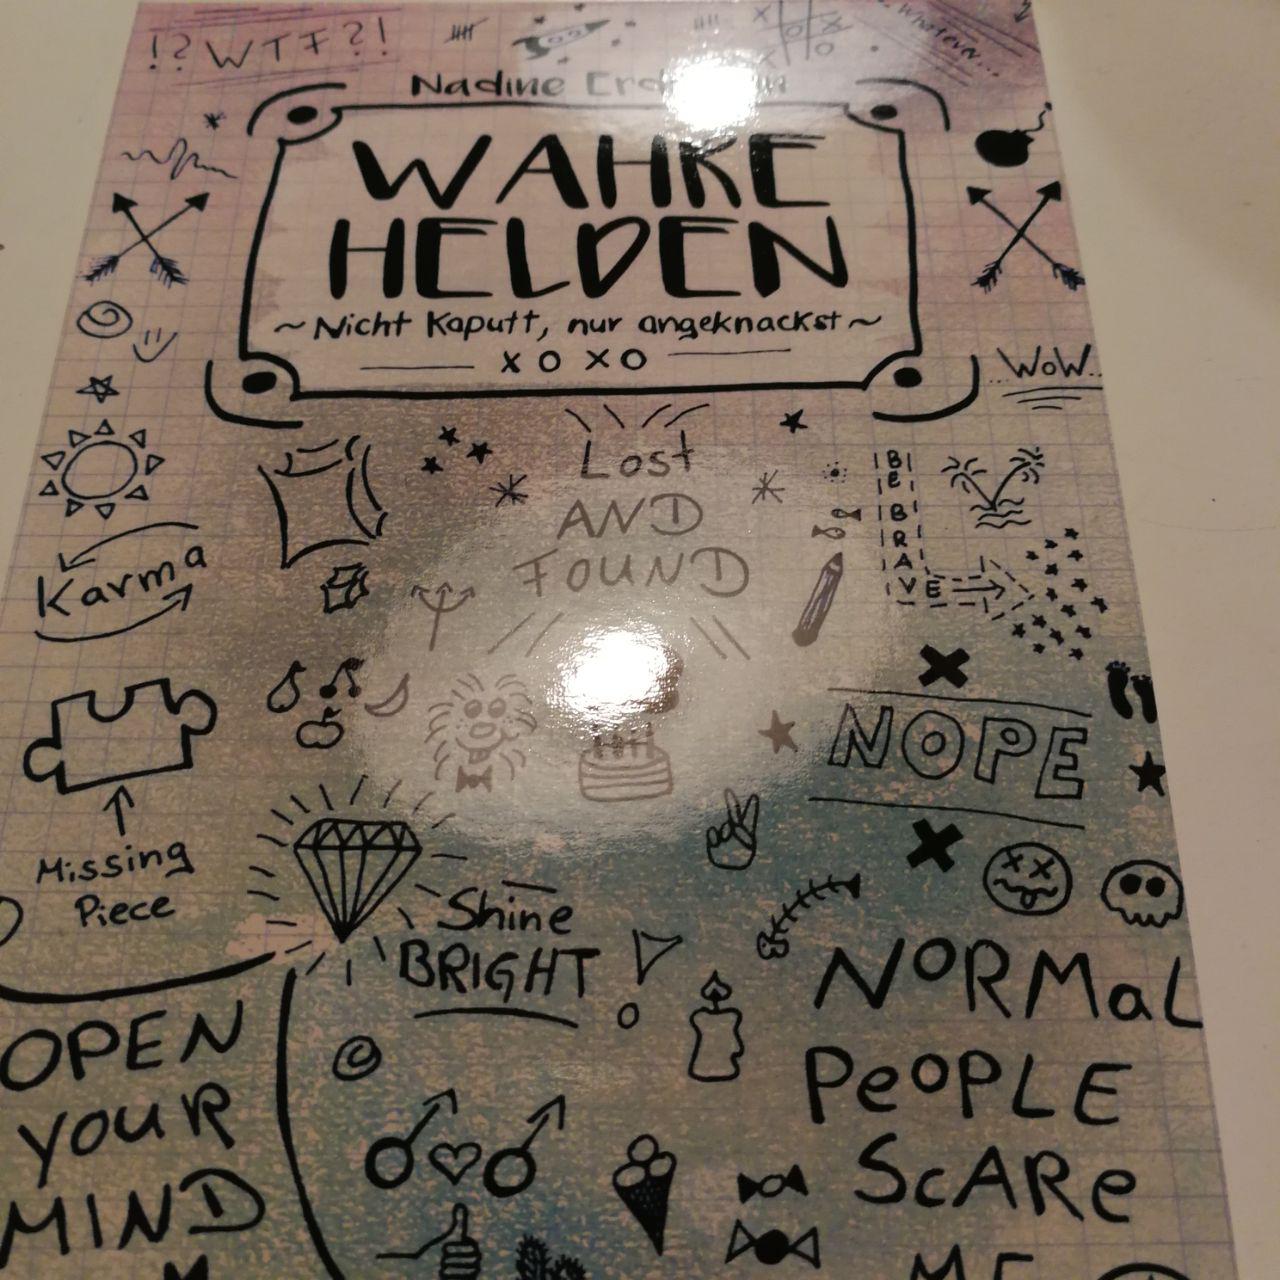 !? WTF?!
Whatever...
Nadine
WAHRE
HELDEN
~Nicht Kaputt, nur angeknackst~
XOXO
WOW
Lost
AND
FOUND
BE BRAVE
Karma
NOPE
Missing
Piece
Shine
BRIGHT
NORMaL
PeOPLE
ScARe
ME
OPEN
YOUR
MIND